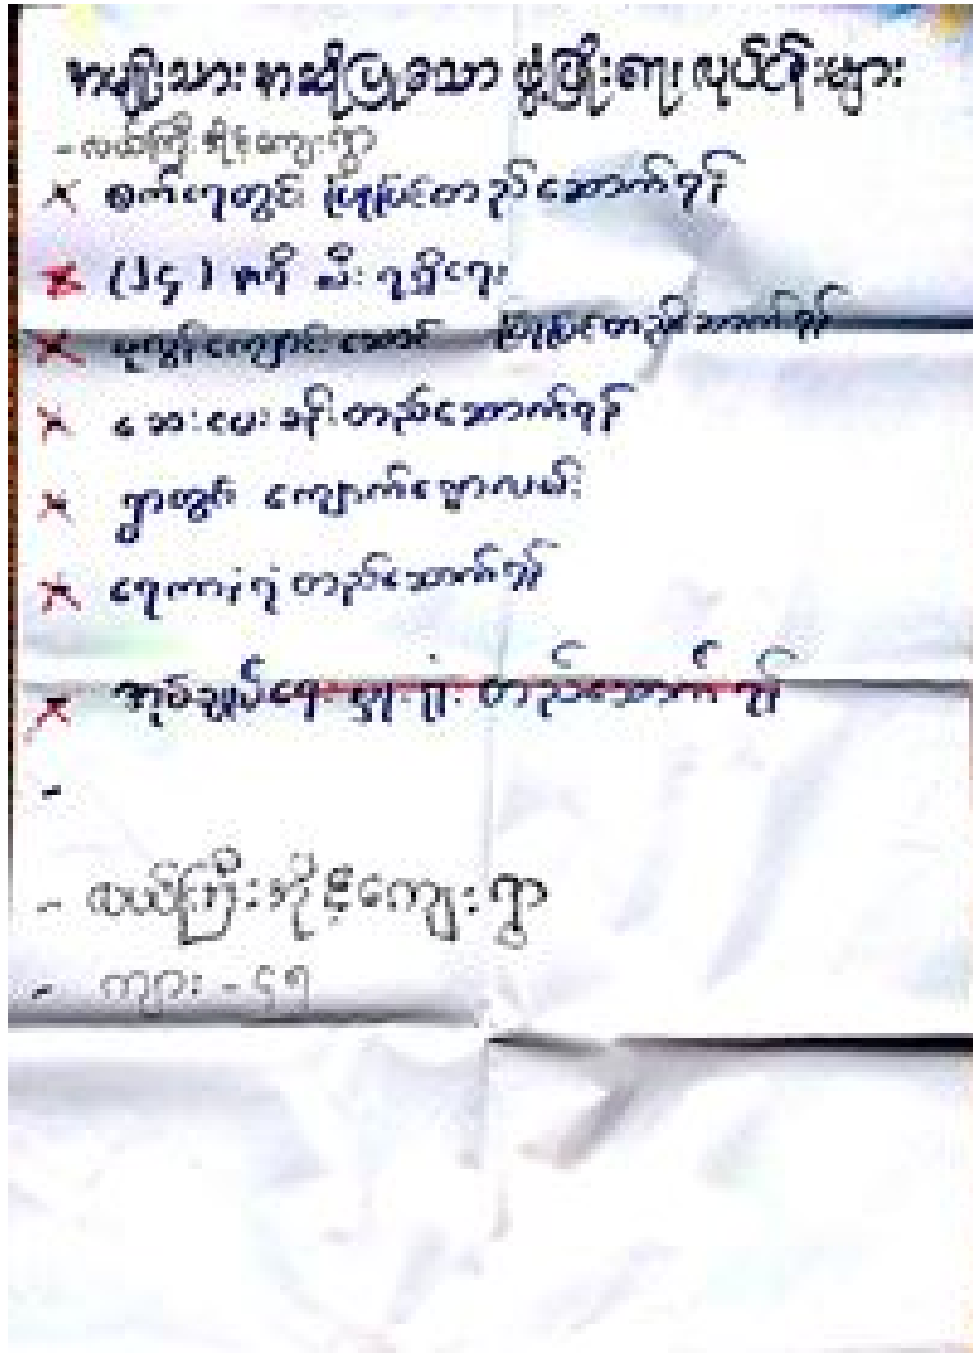 အမျိုးသားအဆိုပြုသော ဖွံ့ဖြိုးရေးလုပ်ငန်းများ
- လယ်ကြီးအိုင့်ကျေးရွာ
× စက်ရေတွင်း ပြုပြင်တည်ဆောက်ရန်
× (၂၄) နာရီ မီးရရှိရေး
× မူလွန်ကျောင်းဆောင် ပြုပြင်တည်ဆောက်ရန်
× ဆေးပေးခန်းတည်ဆောက်ရန်
× ရွာတွင်း ကျောက်ချောလမ်း
× ရေကာရံတည်ဆောက်ရန်
× အုပ်ချုပ်ရေးမှူးရုံးတည်ဆောက်ရန်
-
- လယ်ကြီးအိုင့်ကျေးရွာ
- ကျား - ၄၅